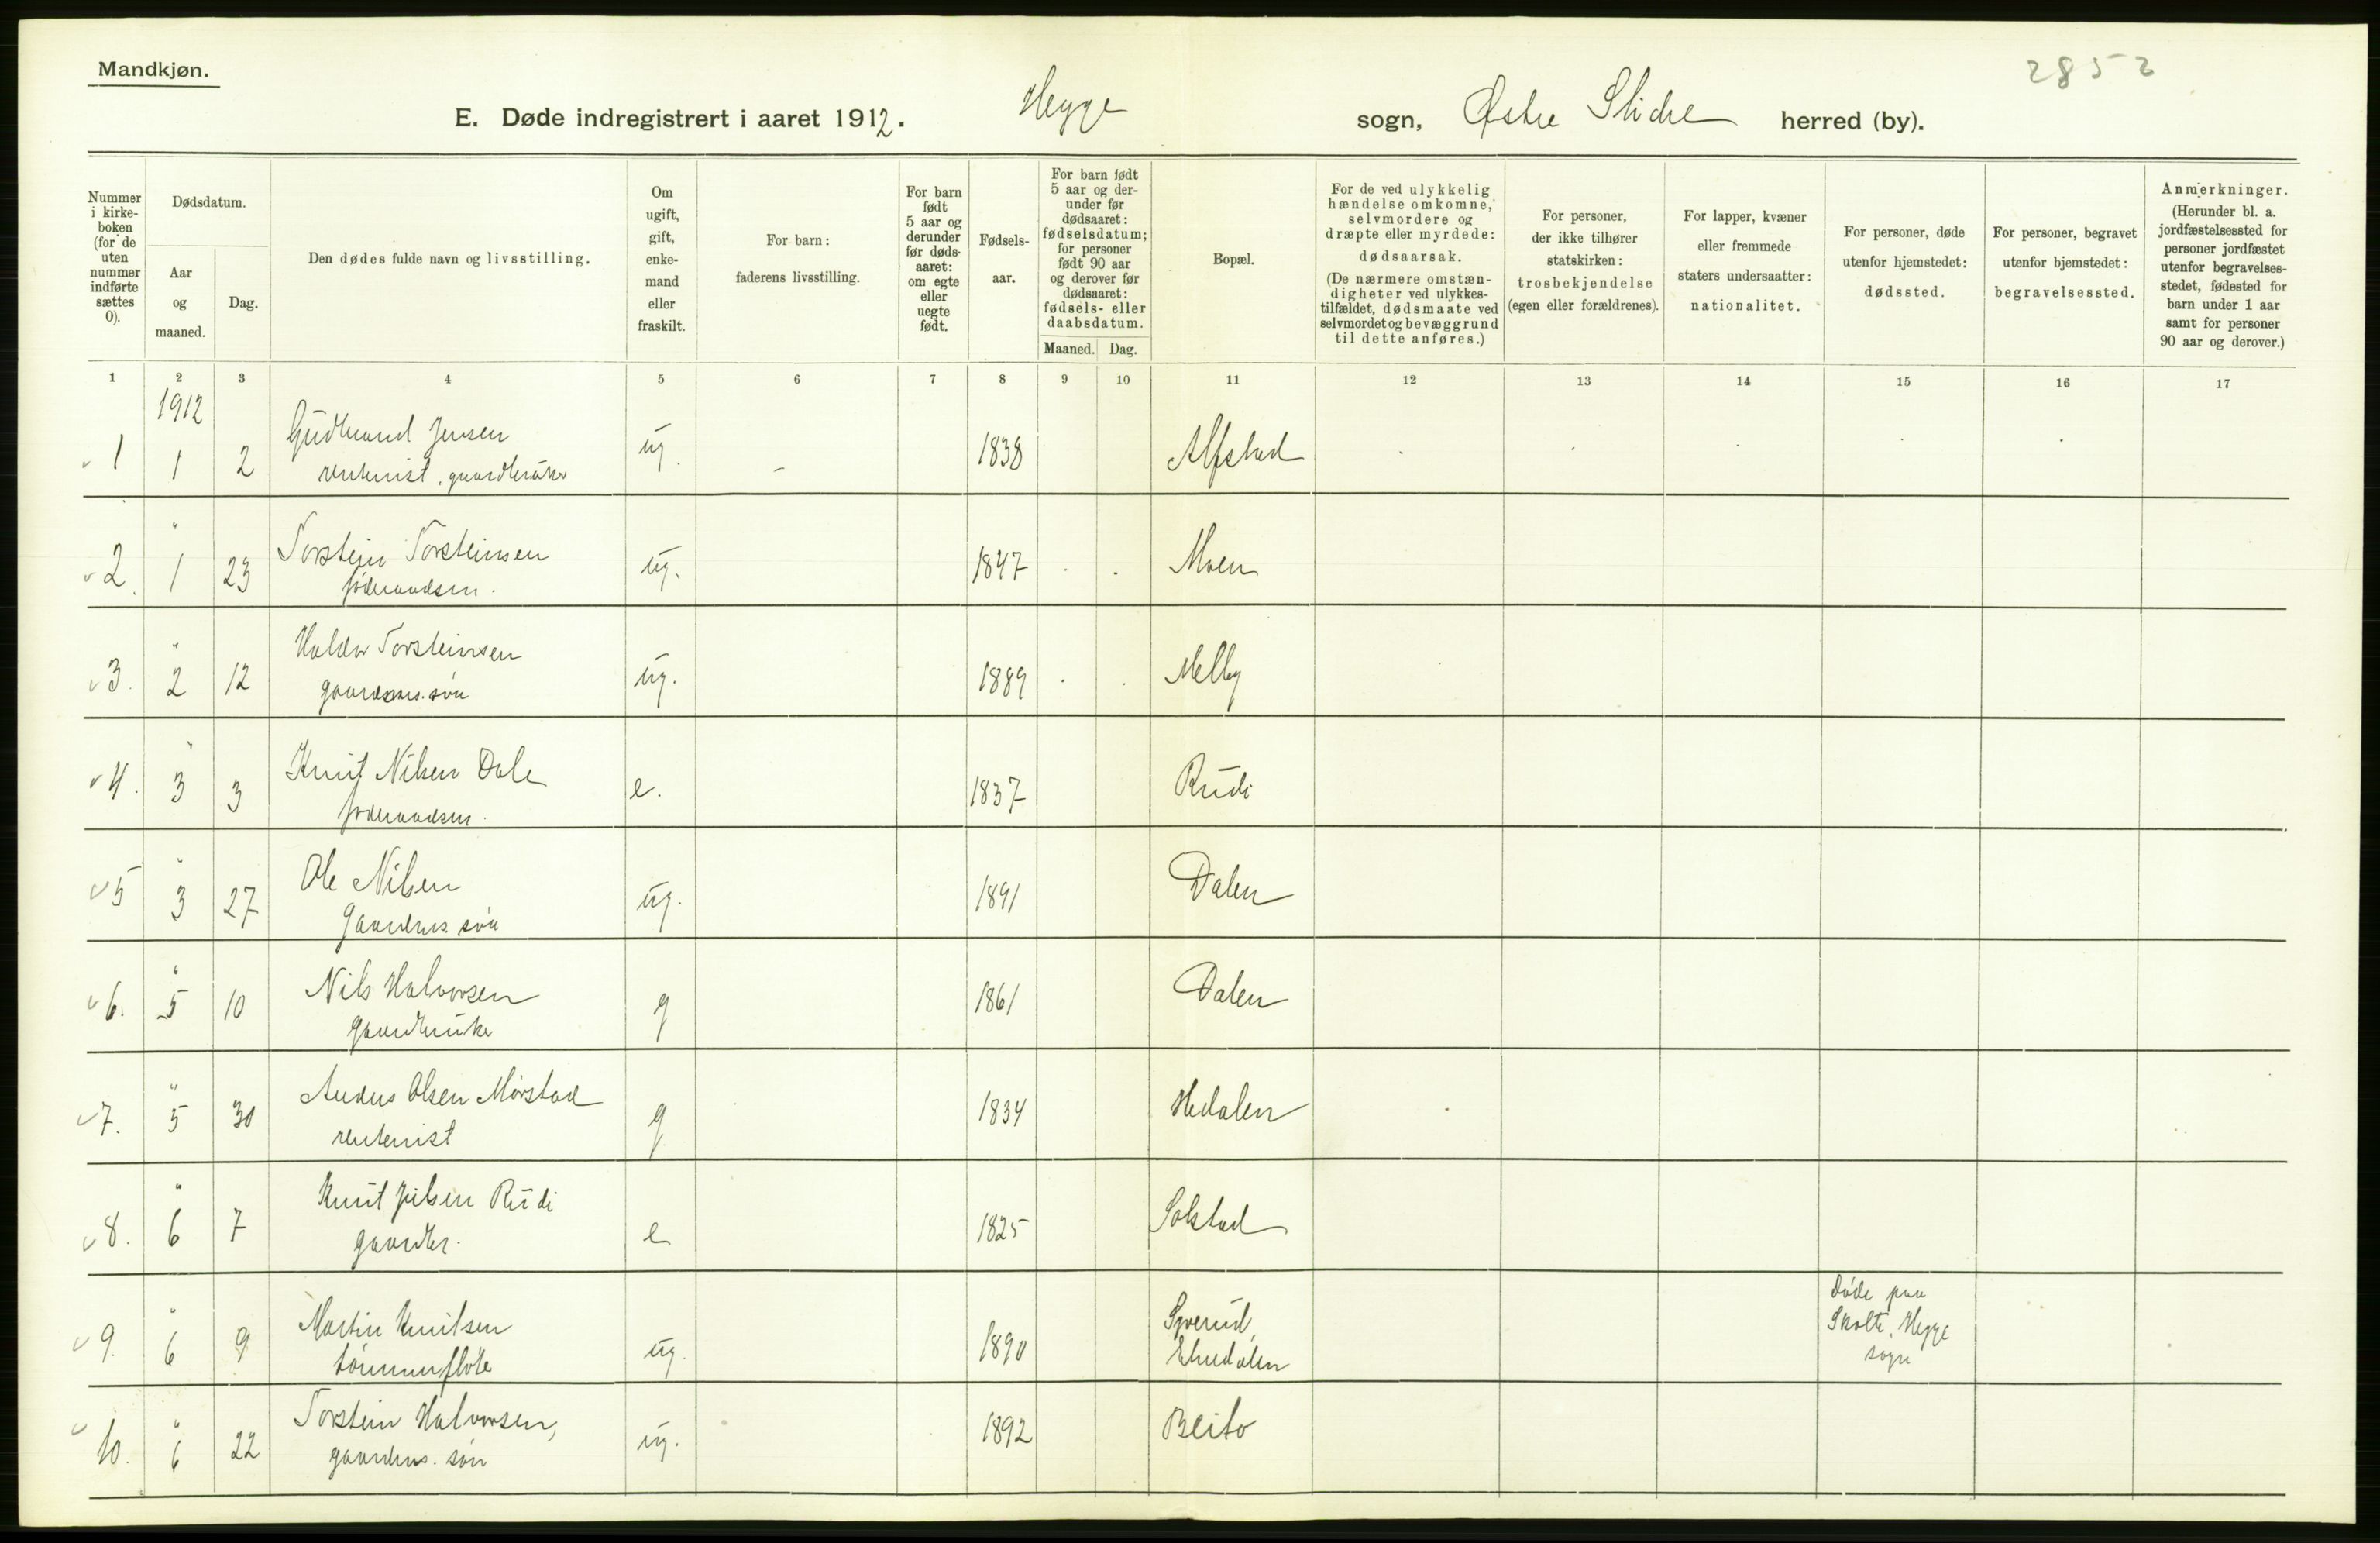 Mandkjøn.
2852
E. Døde indregistrert i aaret 1912. Hegge sogn, Østre Slidre herred (by).
Nummer i kirke-boken (for de uten nummer indførte sættes 0).
Dødsdatum.
Aar og maaned.
Dag.
Den dødes fulde navn og livsstilling.
Om ugift, gift, enke-mand eller fraskilt.
For barn: faderens livsstilling.
For barn født 5 aar og derunder før døds-aaret: om egte eller uegte født.
Fødsels-aar.
For barn født 5 aar og der-under før dødsaaret: fødselsdatum; for personer født 90 aar og derover før dødsaaret: fødsels- eller daabsdatum.
Maaned. Dag.
Bopæl.
For de ved ulykkelig hændelse omkomne, selvmordere og dræpte eller myrdede: dødsaarsak. (De nærmere omstæn-digheter ved ulykkes-tilfældet, dødsmaate ved selvmordet og bevæggrund til dette anføres.)
For personer, der ikke tilhører statskirken: trosbekjendelse (egen eller forældrenes).
For lapper, kvæner eller fremmede staters undersaatter: nationalitet.
For personer, døde utenfor hjemstedet: dødssted.
For personer, begravet utenfor bjemstedet: begravelsessted.
Anmerkninger. (Herunder bl. a. jordfæstelsessted for personer jordfæstet utenfor begravelses-stedet, fødested for barn under 1 aar samt for personer 90 aar og derover.)
1 2 3 4 5 6 7 8 9 10 11 12 13 14 15 16 17
1912
1 1 2 Gudbrand Jensen ug. - 1838 Alfstad
rentenist, gaardbruker
2. " 1 23 Torstein Torsteinsen ug. 1847 Moen
föderaadsm.
3. " 2 12 Haldor Torsteinsen ug. 1889 Melby
gaardms. søn
4. " 3 3 Knut Nilsen Dale e. 1837 Rudi
föderaadsm.
5 " 3 27 Ole Nilsen ug. 1891 Dalen
gaardms søn
6. " 5 10 Nils Halvorsen g 1861 Dalen
gaardbruker
7. " 5 30 Anders Olsen Mørstad g 1834 Hedalen
rentenist
8. " 6 7 Knut Jilsen Rudi e 1825 Solstad
gaardbr.
9. " 6 9 Martin Knutsen ug. 1890 Sjverud, Etnedalen Døde paa Skolte, Hegge sogn
tömmerfløte
10. " 6 22 Torstein Halvorsen, ug. 1892 Beito
gaardms. søn